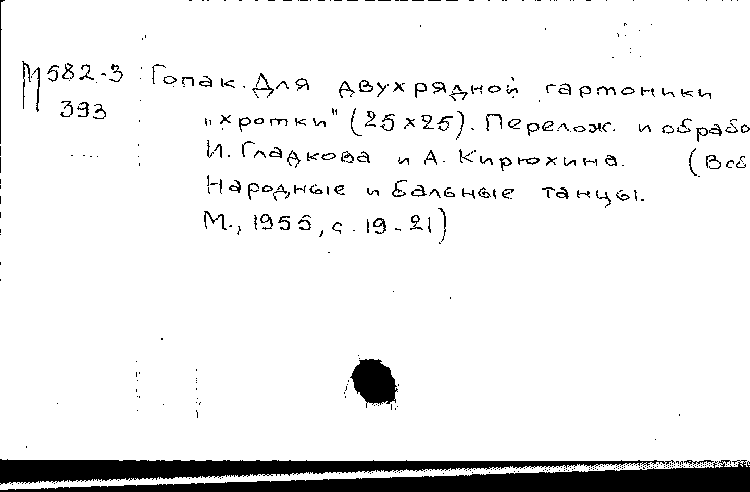 М 582-3 Гопак. Для двухрядной гармоники
393 "хромки" (25х25). Перелож. и обрабо
И. Гладкова и А. Кирюхина. (В сб
Народные и бальные танцы.
М., 1955, с. 19-21)